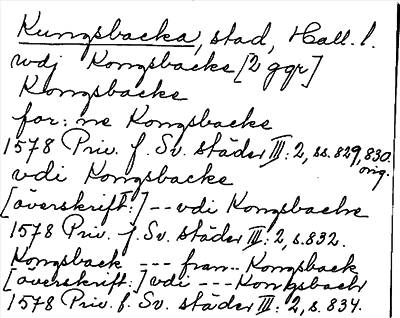 Kungsbacka, stad, Hall. l.
wdj Kongsbacke [2 ggr]
Kongsbacke
for:ne Kongsbacke
1578 Priv. f. Sv. städer III:2, ss. 829, 830.
orig.
vdi Kongsbacke
[överskrift:] -- vdi Kongbache
1578 Priv. f. Sv. städer III:2, s. 832.
Kongsback --- fran -- Kongsback
[överskrift:] vdi --- Kongsbach
1578 Priv. f. Sv. städer III:2, s. 834.